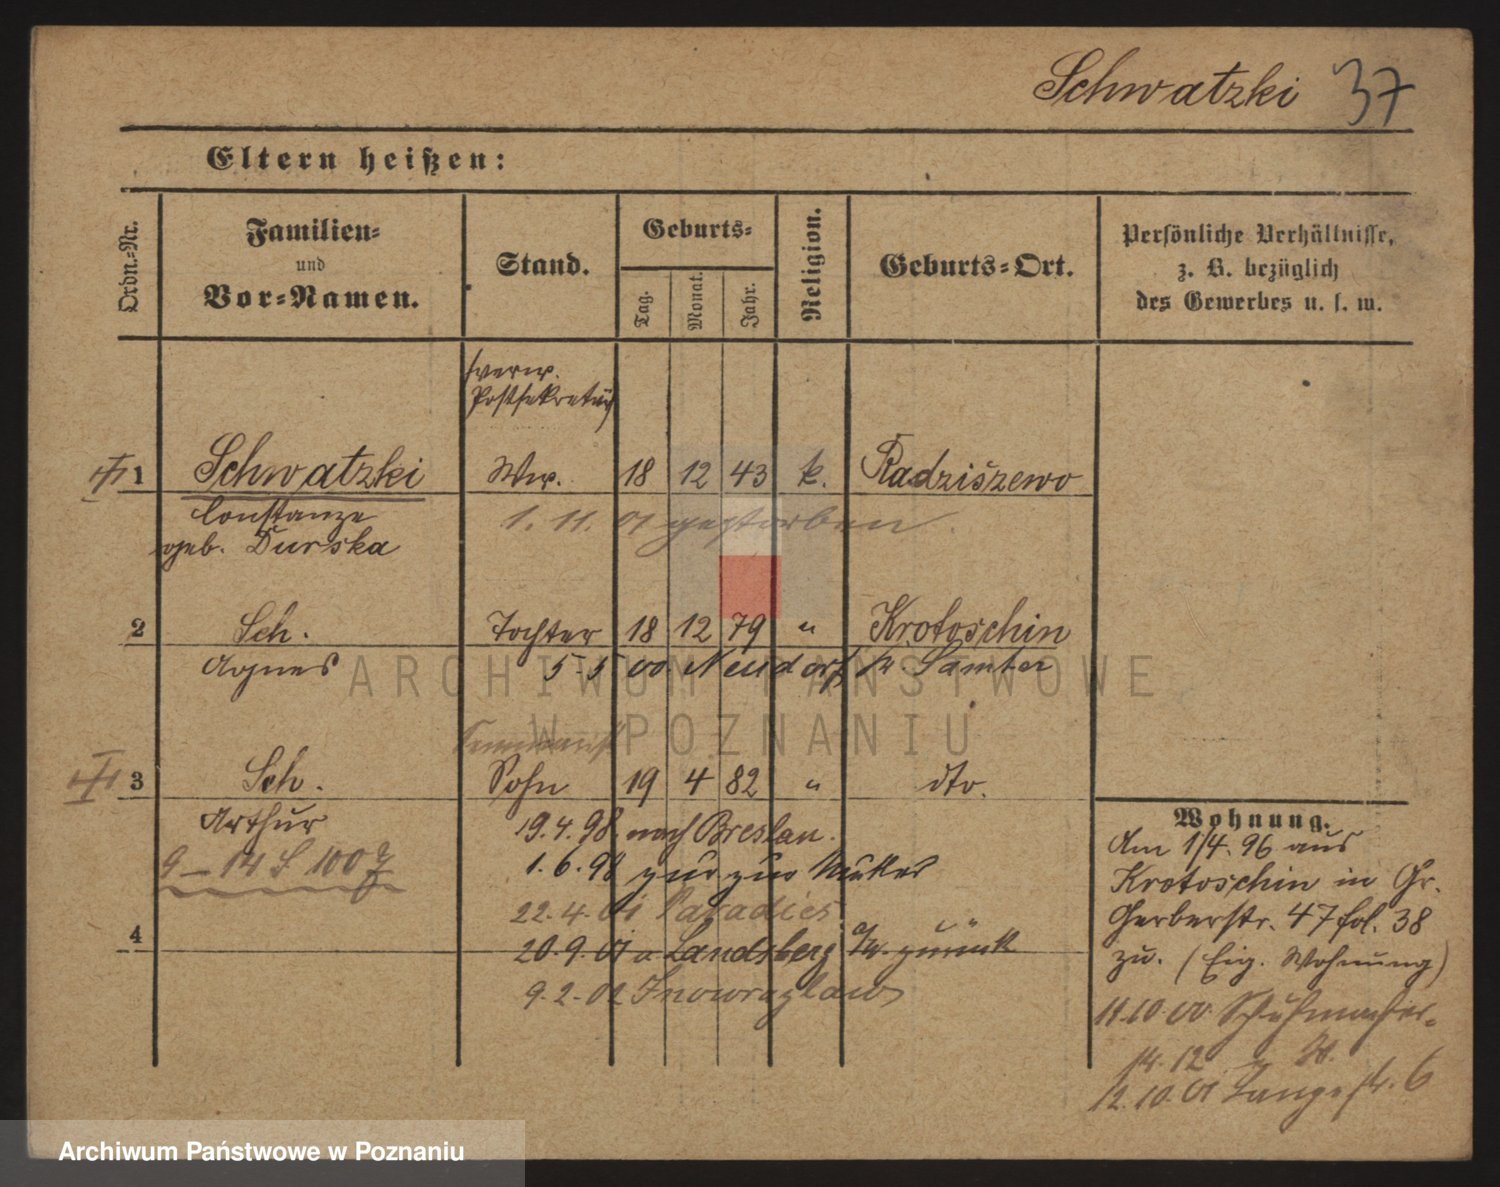 Schwatzki 37
Eltern heißen:
Ordn.-Nr.
Familien-
und
Vor-Namen.
Stand.
Geburts-
Tag.
Monat.
Jahr.
Religion.
Geburts-Ort.
Persönliche Verhältnisse,
z. B. bezüglich
des Gewerbes u. s. w.
verw.
Postsekretär
1 Schwatzki Ww. 18 12 43 k. Radziszewo
Constanze 1. 11. 01 gestorben.
geb. Durska
2 Sch. Tochter 18 12 79 " Krotoschin
Agnes 5. 5. 00. Neudorf Kr. Samter
3 Sch. Sohn 19 4 82 " dto.
Arthur 19. 4. 98. nach Breslau.
1. 6. 98 zur Mutter
9 – 14
22. 4. 01 Paradies
4 20. 9. 01 a. Landsberg a/W. zurück
9. 2. 02 Inowrazlaw
Wohnung.
Am 1/4. 96 aus
Krotoschin in Gr.
Gerberstr. 47 fol. 38
zu. (Eig. Wohnung)
11. 10. 00. Schuhmacher-
str. 12
12. 10. 01 Langestr. 6
ARCHIWUM PAŃSTWOWE
W POZNANIU
Archiwum Państwowe w Poznaniu